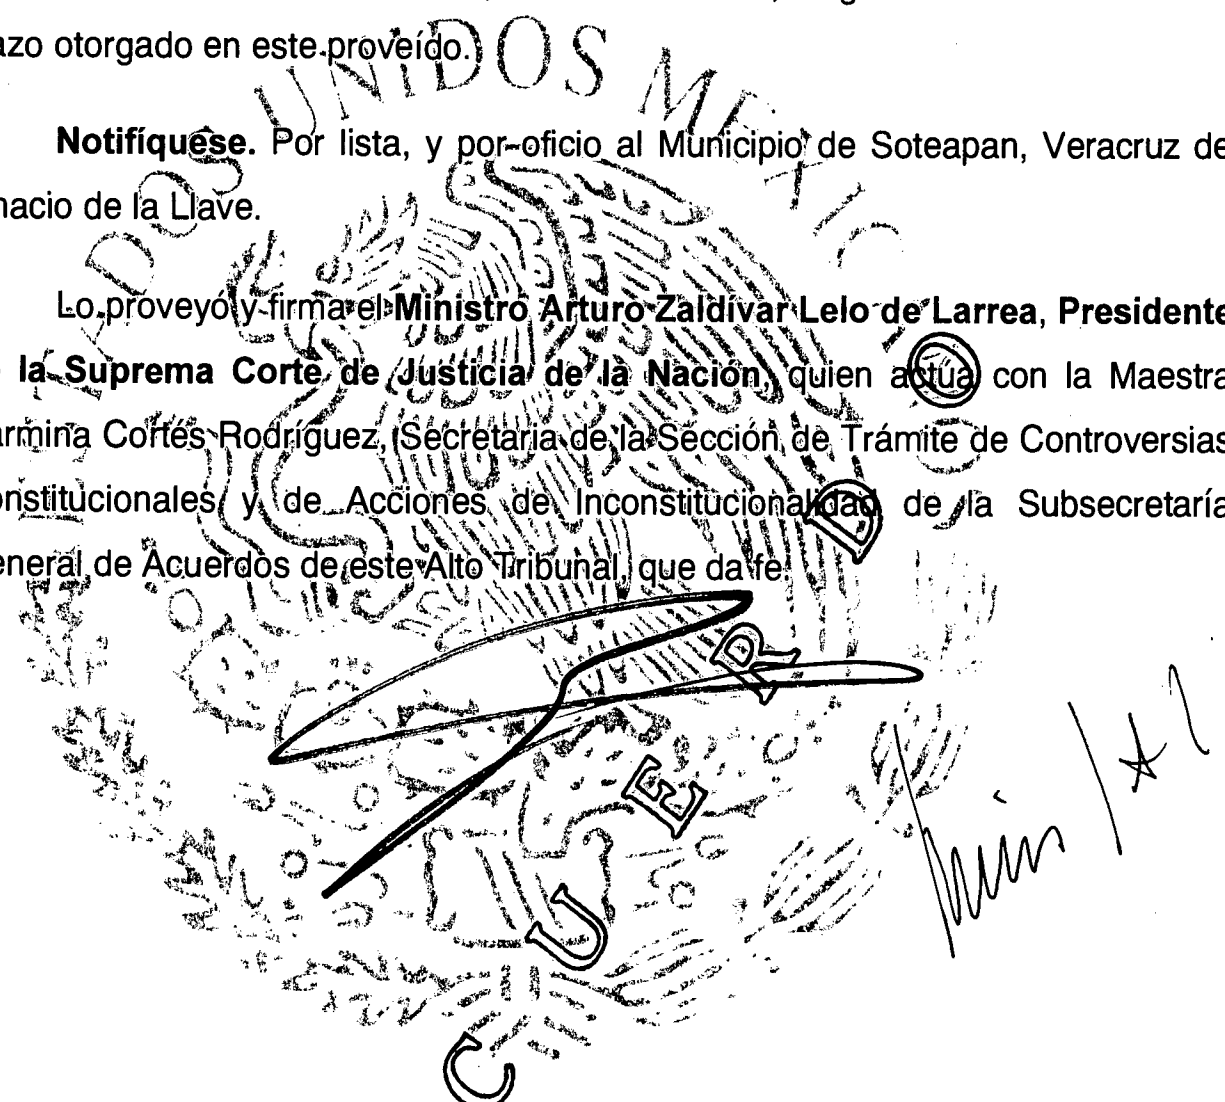 azo otorgado en este proveído.
Notifíquese. Por lista, y por oficio al Municipio de Soteapan, Veracruz de
nacio de la Llave.
Lo proveyó y firma el Ministro Arturo Zaldívar Lelo de Larrea, Presidente
la Suprema Corte de Justicia de la Nación, quien actúa con la Maestra
armina Cortés Rodríguez, Secretaria de la Sección de Trámite de Controversias
onstitucionales y de Acciones de Inconstitucionalidad de la Subsecretaría
eneral de Acuerdos de este Alto Tribunal, que da fe.
UNIDOS MEXIC
C U E R D O